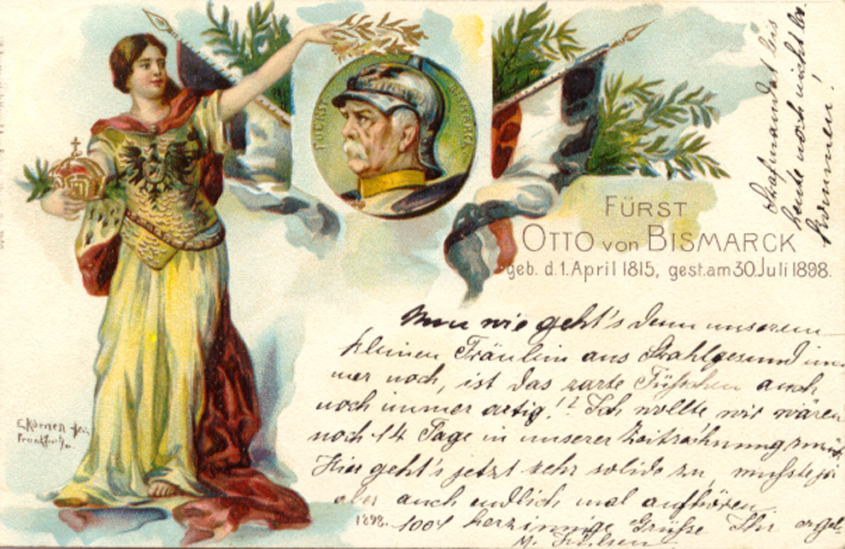 FUERST BISMARCK
FÜRST
OTTO VON BISMARCK
geb. d. 1. April 1815, gest. am 30. Juli 1898.
bis
heute noch nicht be-
kommen!
Nun wie geht's denn unserem
kleinen Fräulein aus Stahlgesund im
mer noch, ist das zarte Füßchen auch
noch immer artig!? Ich wollte wir wären
noch 14 Tage in unserer Zeitrechnung zurück
Hier geht's jetzt sehr solide zu, mußte ja
aber auch endlich mal aufhören.
1898. 1001 herzinnige Grüße Ihr
Frankfurt